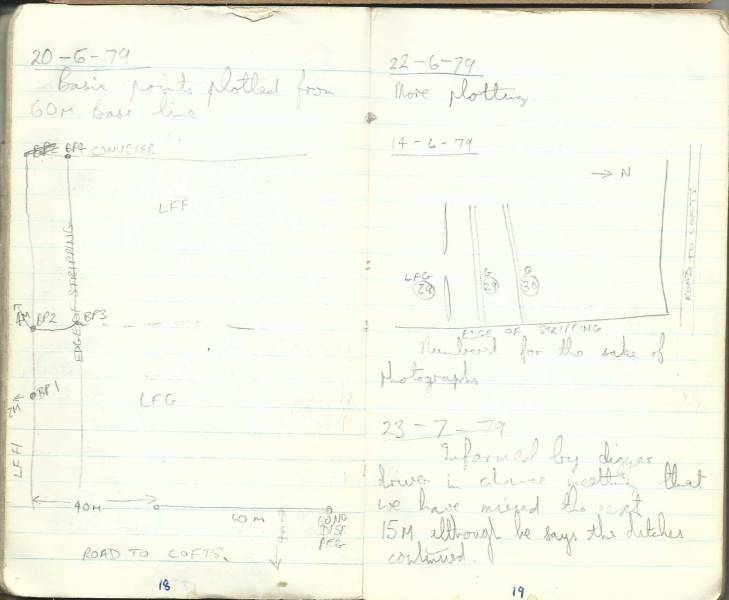 20-6-79
Basic points plotted from
60M Base line
BP4 CONVEYER
LFF
EDGE OF STRIPPING
BP2
BP3
BP1
2M
LFG
LFH
40M
60M
LONG
DIST
PEG
ROAD TO LOFTS.
18
22-6-79
More plotting.
14-6-79
→ N
ROAD TO LOFTS
LFG
28
G
29
G
30
EDGE OF STRIPPING
Numbered for the sake of
photographs
23-7-79
Informed by digger
driver in chance meeting that
we have missed the next
15M although he says the ditches
continued.
19